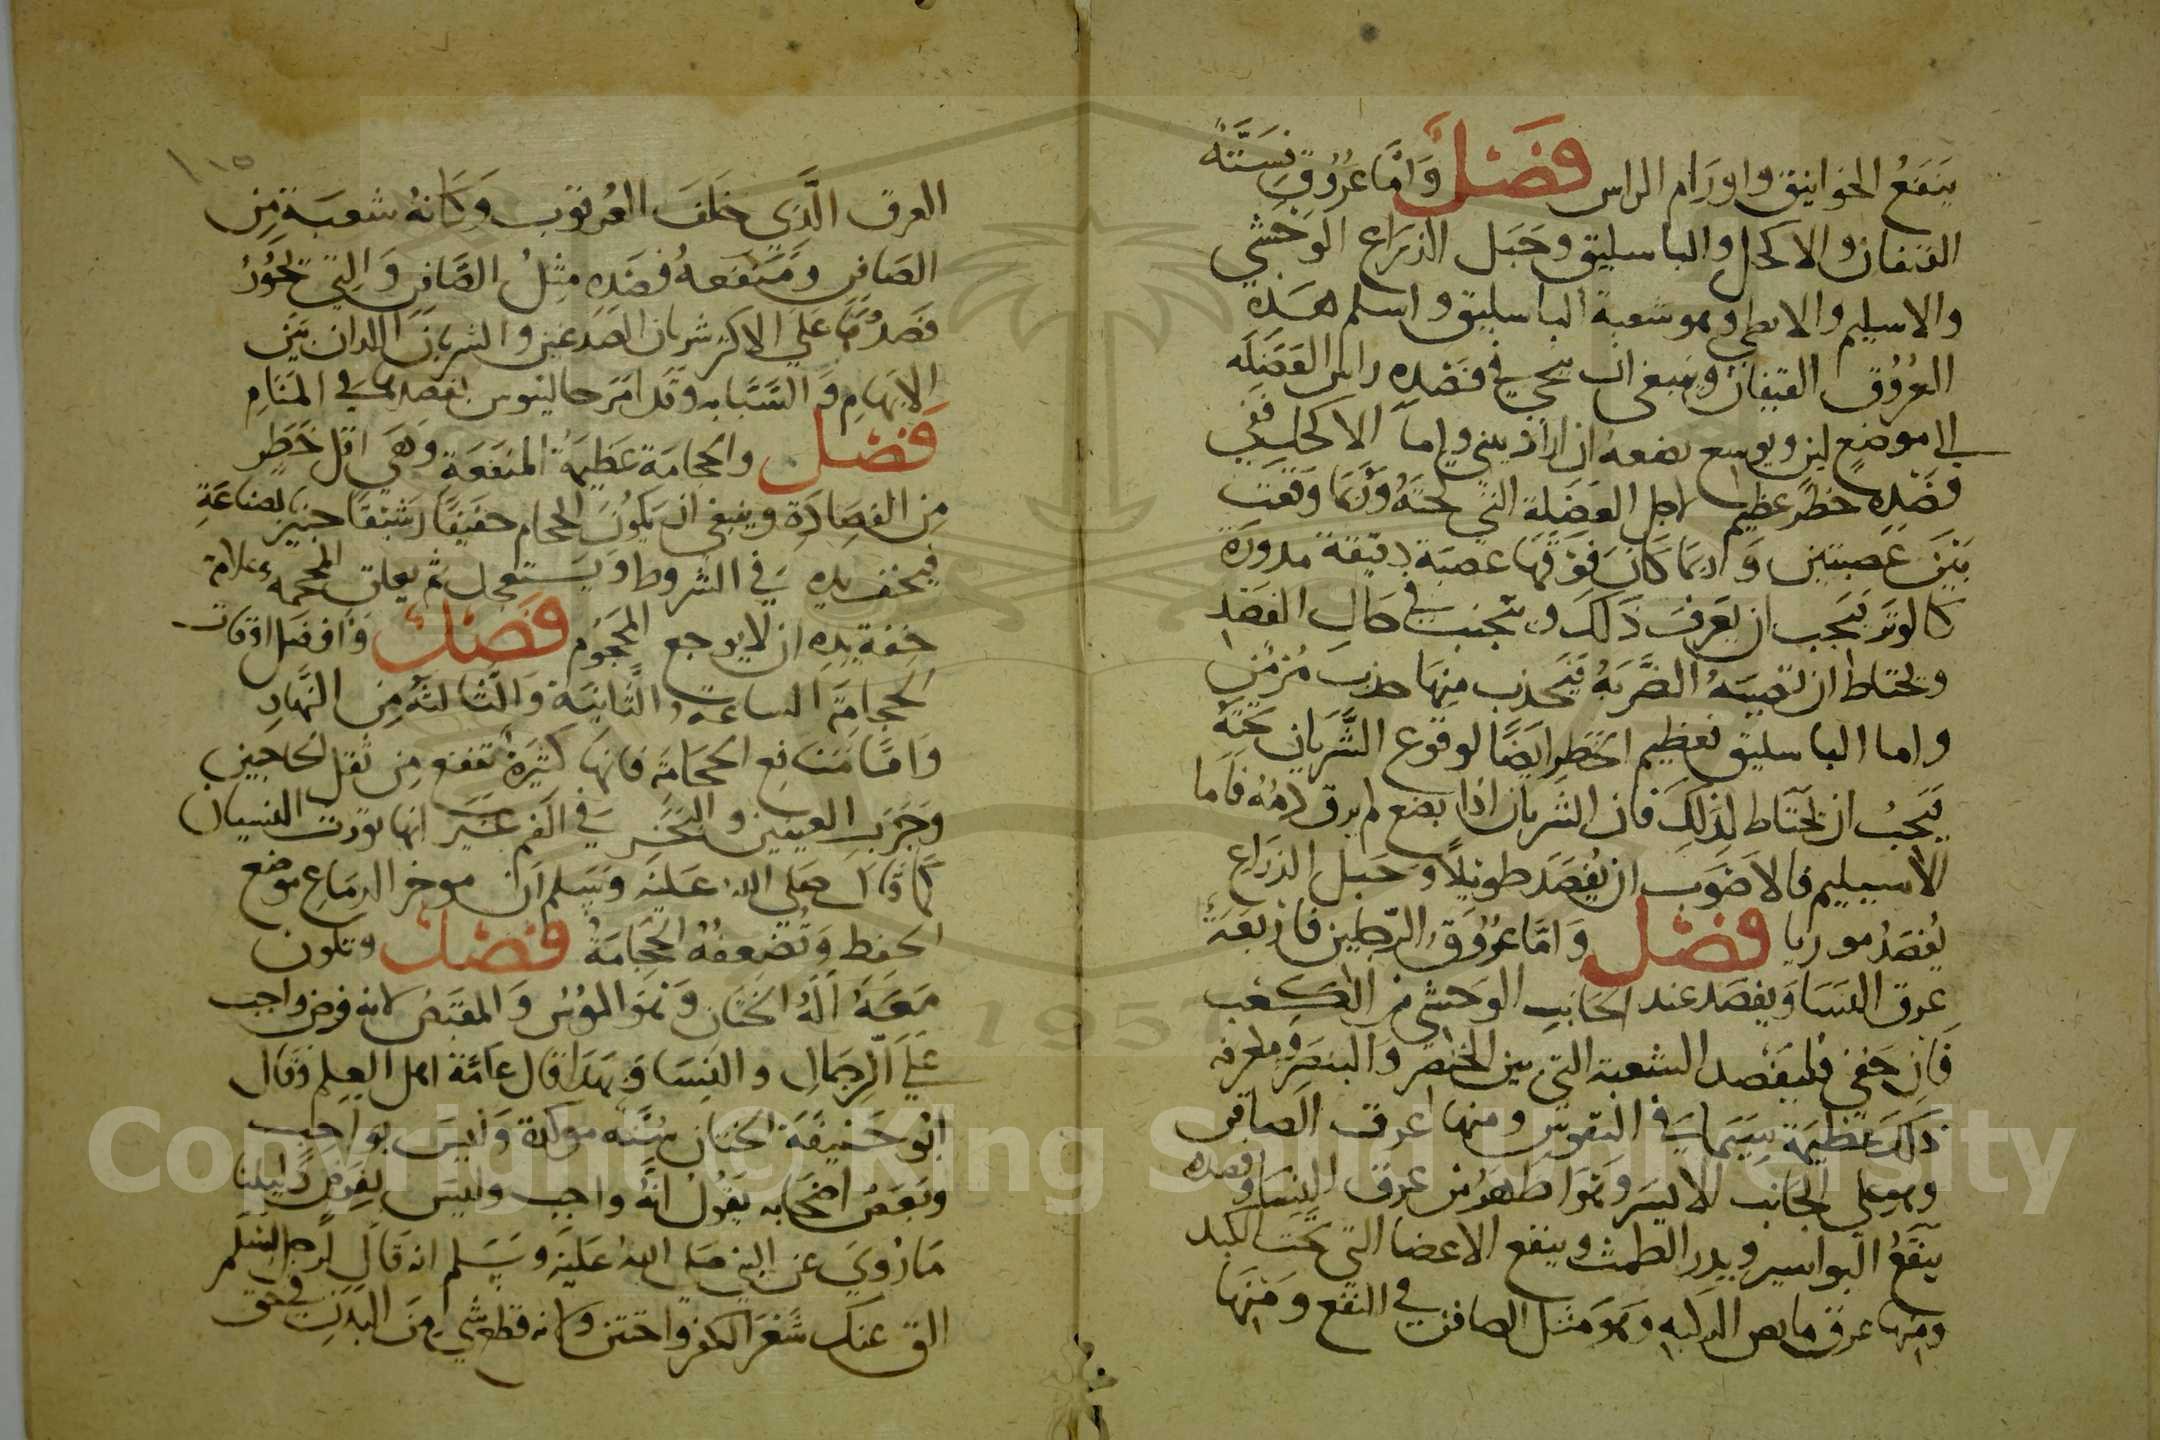 ينفع الخوانيق واورام الراس فصل واما عروق فستة
القيفان والاكحل والباسليق وحبل الذراع الوحشي
والاسيلم والابطي وهو شعبة الباسليق واسلم هذه
العروق القيفان وينبغي ان ينحي في فصده راس العضلة
الى موضع لين ويوسع بضعه ان اراد يثني واما الاكحل ففي
فصده خطر عظيم لاجل العضلة التي تحته وربما وقعت
بين عصبتين وربما كان فوقها عصبة دقيقة مدورة
كالوتر فيجب ان يعرف ذلك ويتجنب في حال الفصد
ويحتاط ان تصيبه الضربة فيحدث منها خدر مزمن
واما الباسليق فعظيم الخطر ايضا لوقوع الشريان تحته
فيجب ان يحتاط لذلك فان الشريان اذا بضع لم يرق دمه فاما
الاسيليم فالاصوب ان يفصد طويلا وحبل الذراع
يفصد موربا فصل واما عروق الرجلين فاربعة
عرق النسا ويفصد عند الجانب الوحشي من الكعب
فان خفي فليفصد الشعبة التي بين الخنصر والبنصر ومنفعة
ذلك عظيمة سيما في النقرس ومنها عرق الصافن
وهو على الجانب الايسر وهو اظهر من عرق النسا وفصده
ينفع البواسير ويدر الطمث وينفع الاعضا التي تحت الكبد
ومنها عرق مابض الركبة وهو مثل الصافن في النفع ومنها
١١٥
العرق الذي خلف العرقوب وكانه شعبة من
الصافن ومنفعة فصده مثل الصافن والتي تجوز
فصدها على الاكثر شريان الصدغين والشريان اللذان بين
الابهام والسبابه وقد امر جالينوس بفصدهما في المنام
فصل والحجامة عظيمة المنفعة وهي اقل خطر
من الفصادة وينبغي ان يكون الحجام خفيفا رشيقا خبير بصناعة
فيخف يده في الشروط ويستعجل ثم يعلق المحجمه وعلامة
خفة يده ان لا يوجع المحجوم فصل وافضل اوقات
الحجامة الساعة الثانية والثالثة من النهار
واما منافع الحجامة فانها كثيرة تنفع من ثقل الحاجبين
وجرب العينين والبخر في الفم غير انها تورث النسيان
كما قال صلى الله عليه وسلم ان موخر الدماغ موضع
الحفظ وتضعفه الحجامة فصل وتكون
معه الة الختان وهو الموس والمقص لانه فرض واجب
على الرجال والنسا وبهذا قال عامة اهل العلم وقال
ابو حنيفة الختان سنة موكدة وليس بواجب
وبعض اصحابه يقول انه واجب وليس بفرض دليلنا
ما روي عن النبي صلى الله عليه وسلم انه قال لرجل اسلم
الق عنك شعر الكفر واختتن ولانه قطع شي من البدن في حق
Copyright © King Saud University
1957